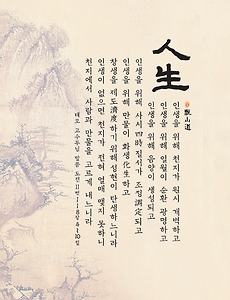 人生
甑山道
인생을 위해 천지가 원시 개벽하고
인생을 위해 일월이 순환 광명하고
인생을 위해 음양이 생성되고
인생을 위해 사시四時 질서가 조정調定되고
인생을 위해 만물이 화생化生하고
창생을 제도濟度하기 위해 성현이 탄생하느니라
인생이 없으면 천지가 전혀 열매 맺지 못하나니
천지에서 사람과 만물을 고르게 내느니라
태모 고수부님 말씀 도전 11편 118장 4~10절